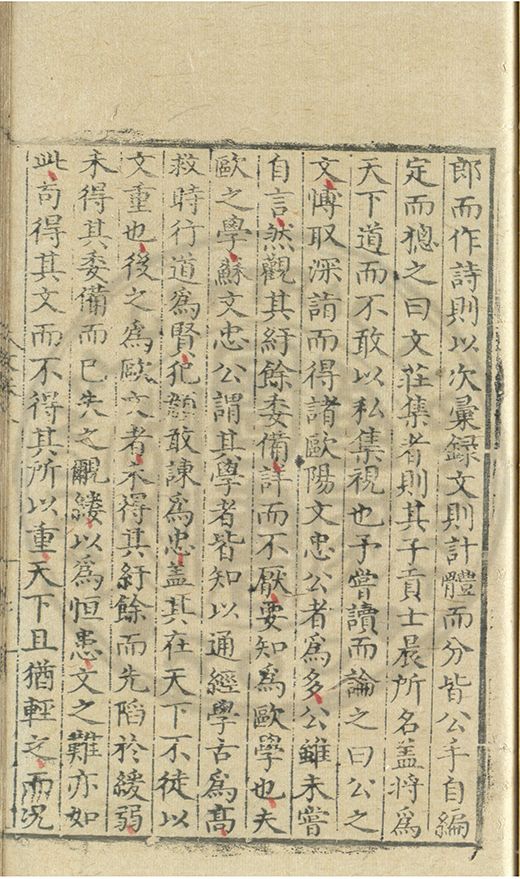 郎而作詩則以次彙録文則計體而分皆公手自編
定而摠之曰文莊集者則其子貢士晟所名盖將爲
天下道而不敢以私集視也予嘗讀而論之曰公之
文博取深詣而得諸歐陽文忠公者爲多公雖未嘗
自言然觀其紆餘委備詳而不厭要知爲歐學也夫
歐之學蘇文忠公謂其學者皆知以通經學古爲高
救時行道爲賢犯顔敢諫爲忠盖其在天下不徒以
文重也後之爲歐文者未得其紆餘而先陷於緩弱
未得其委備而已失之覼縷以爲恒患文之難亦如
此苟得其文而不得其所以重天下且猶輕之而況